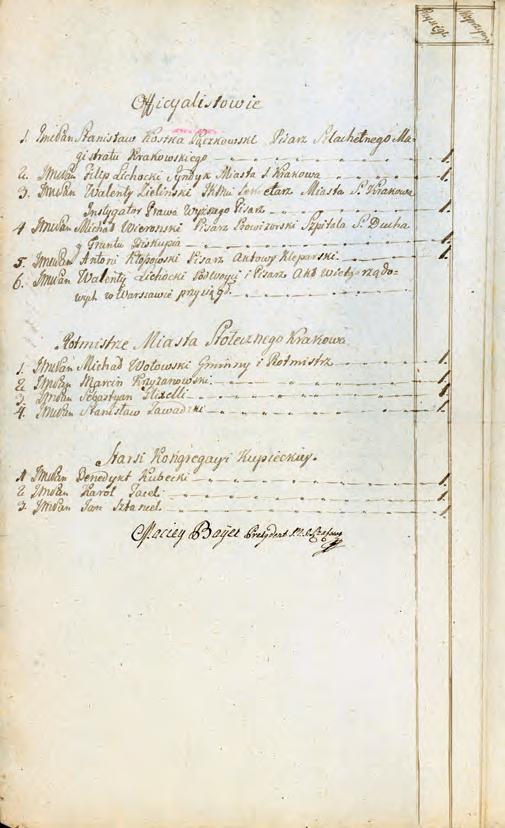 Officyalistowie
1. Jmc Pan Stanisław Kostka Pączkowski Pisarz Szlachetnego Ma-
gistratu Krakowskiego 1.
2. JmcPan Filip Lichocki Syndyk Miasta S. Krakowa 1.
3. JmcPan Walenty Zieliński Sekretarz Miasta S. Krakowa
Instygator Prawa Wyższego Pisarz 1.
4 JmcPan Michał Wieronski Pisarz Prowizorski Szpitala S. Ducha
y Gruntu Biskupia 1.
5. JmcPan Antoni Kłopowski Pisarz Aktowy Kleparski. 1.
6. JmcPan Walenty Lichocki Podwoyci i Pisarz Akt Wieys rządo-
wych w Warszawie przysiągł.
Rotmistrze Miasta Stołecznego Krakowa
1. JmcPan Michał Wotowski Gminny i Rotmistrz 1.
2. JmcPan Marcin Krzyzanowski. 1.
3 JmcPan Sebastyan Glixelli 1
4. JmcPan Stanisław Zawadzki 1.
Starsi Kongregacyi Kupieckiey.
1 JmcPan Benedykt Kubecki 1.
2 JmcPan Karol 1.
3. JmcPan Jan 1.
Maciey Bayer Prezydent